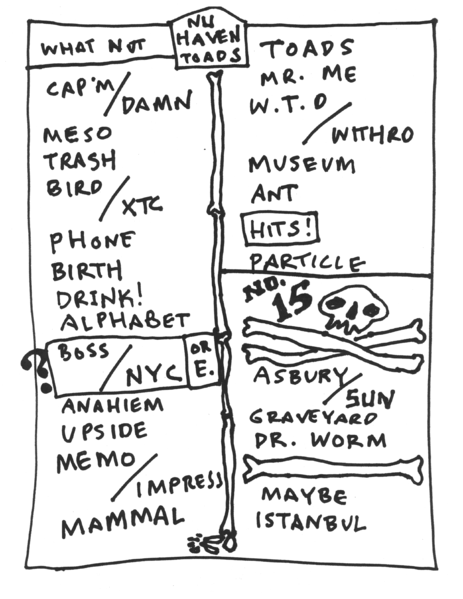 NU
HAVEN
TOADS
WHAT NOT
CAP'M/DAMN
MESO
TRASH
BIRD/XTC
PHONE
BIRTH
DRINK!
ALPHABET
? BOSS/NYC OR E.
ANAHIEM
UPSIDE
MEMO/IMPRESS
MAMMAL
TOADS
MR. ME
W.T.D/WITHRO
MUSEUM
ANT
HITS!
PARTICLE
NO.
15
ASBURY/SUN
GRAVEYARD
DR. WORM
MAYBE
ISTANBUL